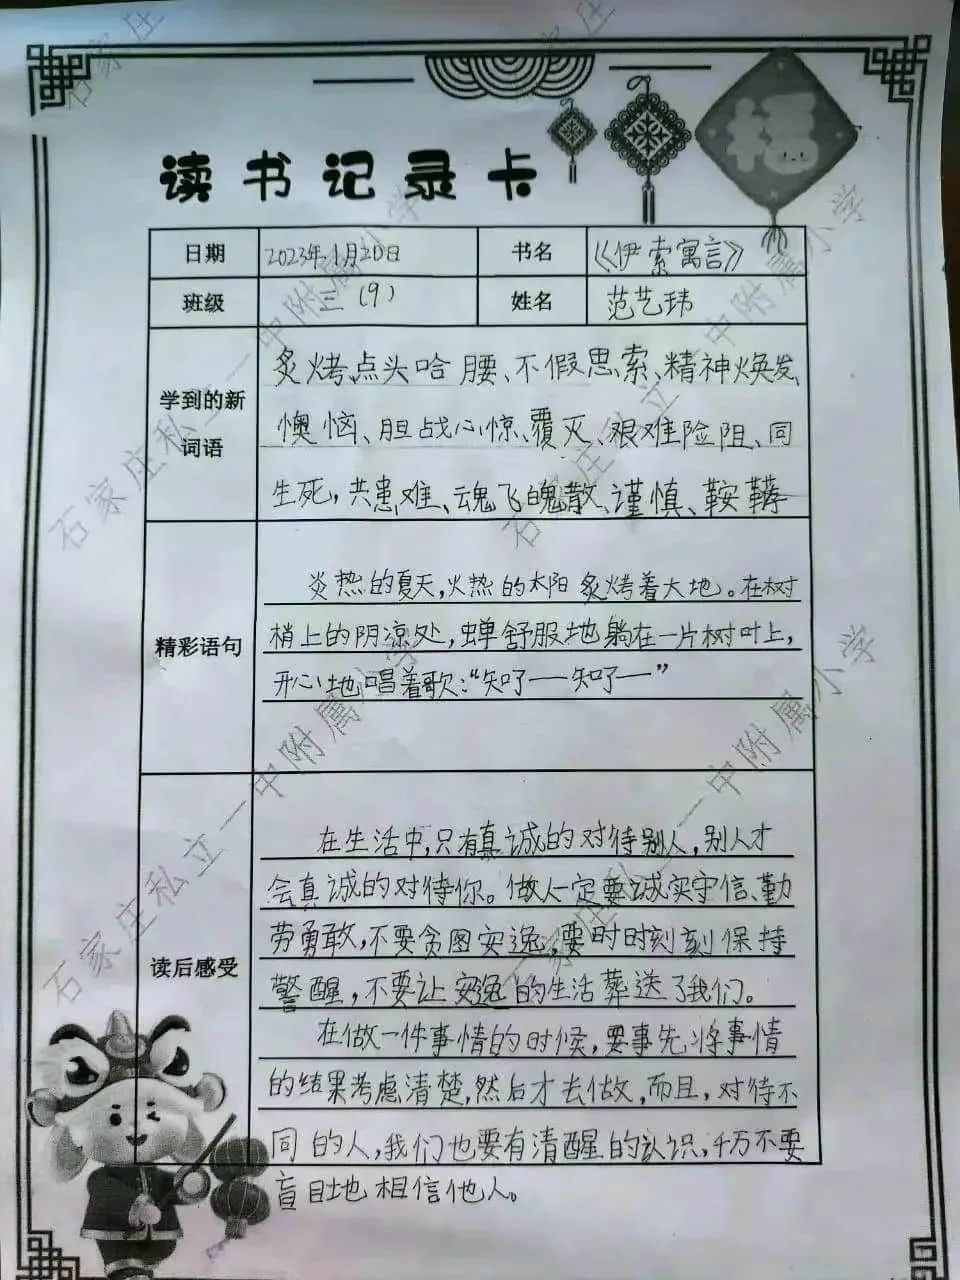 福
读书记录卡
日期 2023年1月20日 书名 《伊索寓言》
班级 三（9） 姓名 范艺玮
学到的新词语
炙烤、点头哈腰、不假思索、精神焕发、
懊恼、胆战心惊、覆灭、艰难险阻、同
生死，共患难、魂飞魄散、谨慎、鞍鞯
精彩语句
炎热的夏天，火热的太阳炙烤着大地。在树
梢上的阴凉处，蝉舒服地躺在一片树叶上，
开心地唱着歌：“知了——知了——”
读后感受
在生活中，只有真诚的对待别人，别人才
会真诚的对待你。做人一定要诚实守信、勤
劳勇敢，不要贪图安逸，要时时刻刻保持
警醒，不要让安逸的生活葬送了我们。
在做一件事情的时候，要事先将事情
的结果考虑清楚，然后才去做，而且，对待不
同的人，我们也要有清醒的认识，千万不要
盲目地相信他人。
石家庄私立一中附属小学
石家庄私立一中附属小学
石家庄私立一中附属小学
石家庄私立一中附属小学
石家庄
石家庄